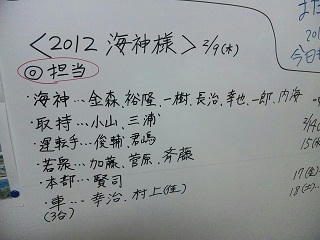 〈2012 海神様〉2/9(木)
◎担当
・海神…金森、裕隆、一樹、長治、幸也、一郎、内海
・取持…小山、三浦
・運転手…俊輔、君嶋
・若衆…加藤、菅原、斉藤
・本部…賢司
・車…幸治、村上(佳)
(3台)
また
201
今日も
2/4(
15(水
17(金)
18(土)